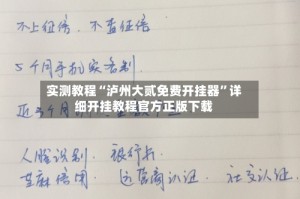 不上征信，不查征信
5个月手机实名制
实测教程“泸州大贰免费开挂器”详
细开挂教程官方正版下载
人脸识别、银行卡
芝麻信用、运营商认证、社交认证